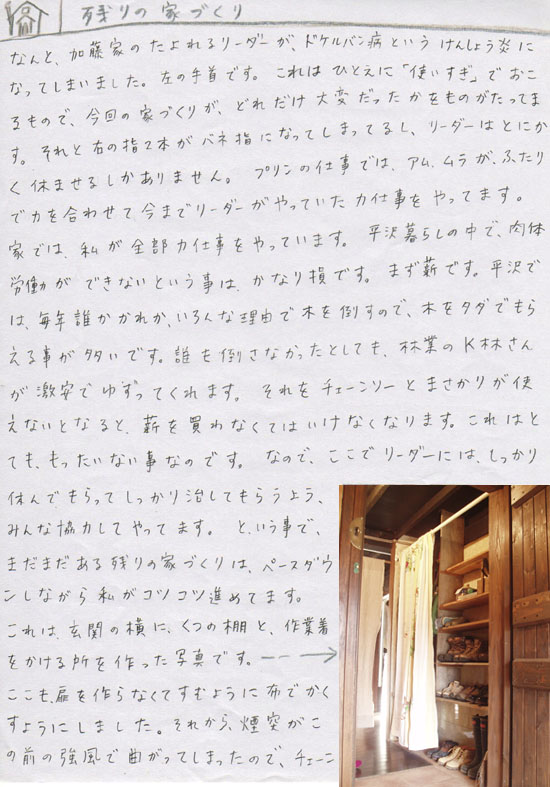 残りの家づくり
なんと、加藤家のたよれるリーダーが、ドケルバン病というけんしょう炎に
なってしまいました。左の手首です。これはひとえに「使いすぎ」でおこ
るもので、今回の家づくりが、どれだけ大変だったかをものがたってま
す。それと右の指2本がバネ指になってしまってるし、リーダーはとにか
く休ませるしかありません。プリンの仕事では、アム、ムラが、ふたり
で力を合わせて今までリーダーがやっていた力仕事をやってます。
家では、私が全部力仕事をやっています。平沢暮らしの中で、肉体
労働ができないという事は、かなり損です。まず薪です。平沢で
は、毎年誰かがれか、いろんな理由で木を倒すので、木をタダでもら
える事が多いです。誰も倒さなかったとしても、林業のK林さん
が激安でゆずってくれます。それをチェーンソーとまさかりが使
えないとなると、薪を買わなくてはいけなくなります。これはと
ても、もったいない事なのです。なので、ここでリーダーには、しっかり
休んでもらってしっかり治してもらうよう、
みんな協力してやってます。と、いう事で、
まだまだある残りの家づくりは、ペースダウ
ンしながら私がコツコツ進めてます。
これは、玄関の横に、くつの棚と、作業着
をかける所を作った写真です。
ここも、扉を作らなくてすむように布でかく
すようにしました。それから、煙突がこ
の前の強風で曲がってしまったので、チェーン